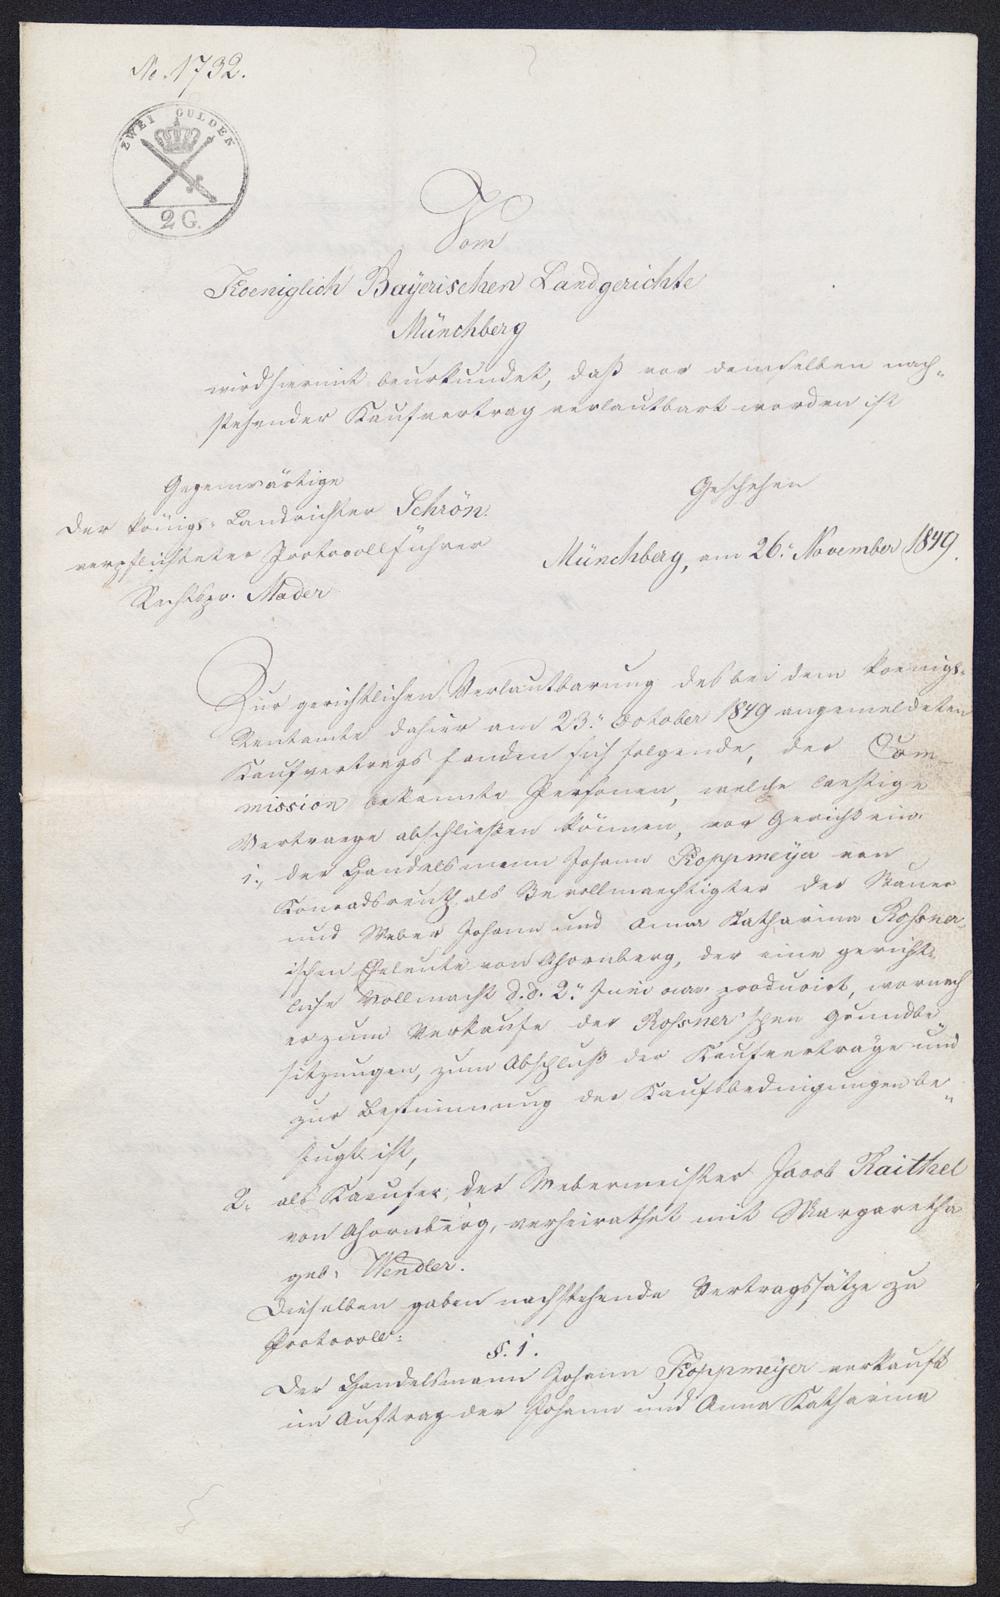 No. 1732.
ZWEI GULDEN
2 G.
Vom
Koeniglich Bayerischen Landgerichte
Münchberg
wird hiermit beurkundet, daß vor demselben nach-
stehender Kaufvertrag verlautbart worden ist
Gegenwärtige
Der königl. Landrichter Schrön.
verpflichteter Protocollführer
Rechtspr. Mader
Geschehen
Münchberg, am 26. November 1849.
Zur gerichtlichen Verlautbarung des bei dem koenigl.
Rentamte dahier am 23. October 1849 angemeldeten
Kaufvertrags fanden sich folgende, der Com-
mission bekannte Personen, welche laestige
Vertraege abschließen können, vor Gericht ein.
1., der Handelsmann Johann Koppmeyer von
Konradsreuth als Bevollmaechtigter der Bauer
und Weber Johann und Anna Katharina Rossner-
ischen Eheleute von Ahornberg, der eine gericht-
liche Vollmacht d. d. 2. Juni producirt, wornach
er zum Verkaufe der Rossner'schen Grundbe
sitzungen, zum Abschluß der Kaufverträge und
zur Bestimmung der Kaufsbedingungen be-
fugt ist,
2. als Kaeufer, der Webermeister Jacob Raithel
von Ahornberg, verheirathet mit Margaretha
geb. Wendler.
Dieselben gaben nachstehende Vertragssätze zu
Protocoll:
§. 1.
Der Handelsmann Johann Koppmeyer verkauft
im Auftrag der Johann und Anna Katharina